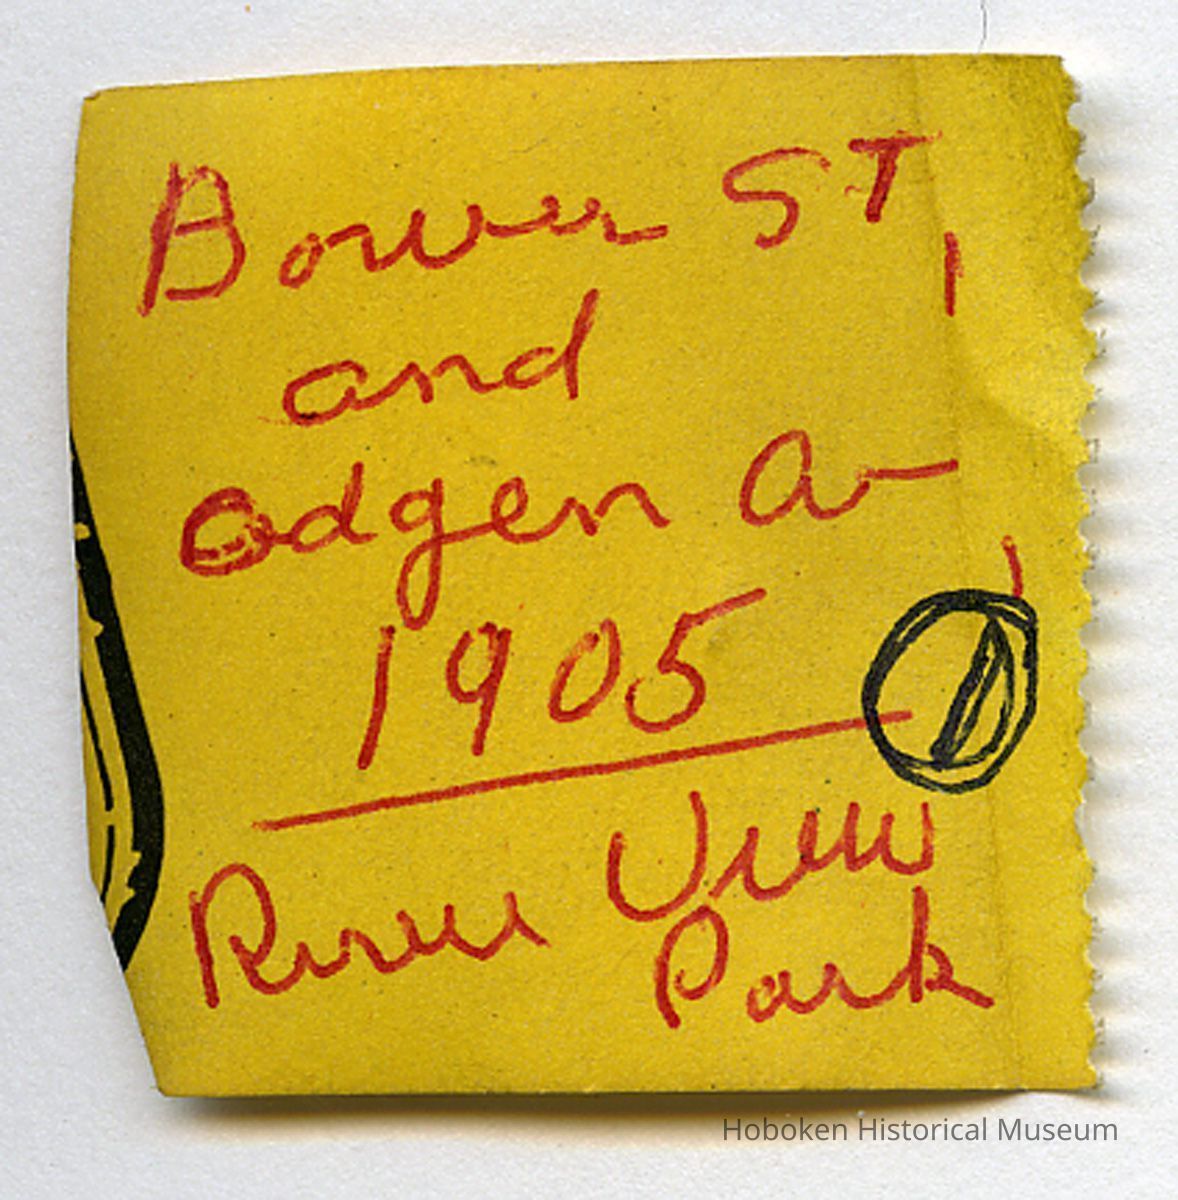 Bower ST
and
Odgen Av
1905
River View
Park
Hoboken Historical Museum